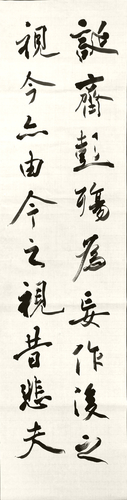 誕齊彭殤為妄作後之
視今亦由今之視昔悲夫